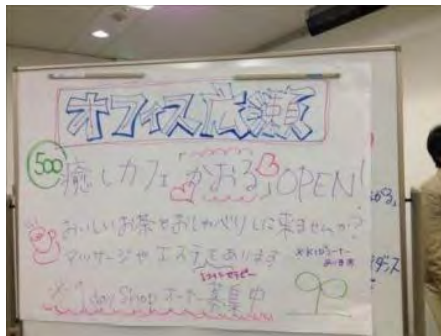 オフィス広瀬
500
癒しカフェ かおる OPEN!
おいしいお茶でおしゃべりしに来ませんか?
マッサージや エステもあります
1 day Shop オーナー募集中